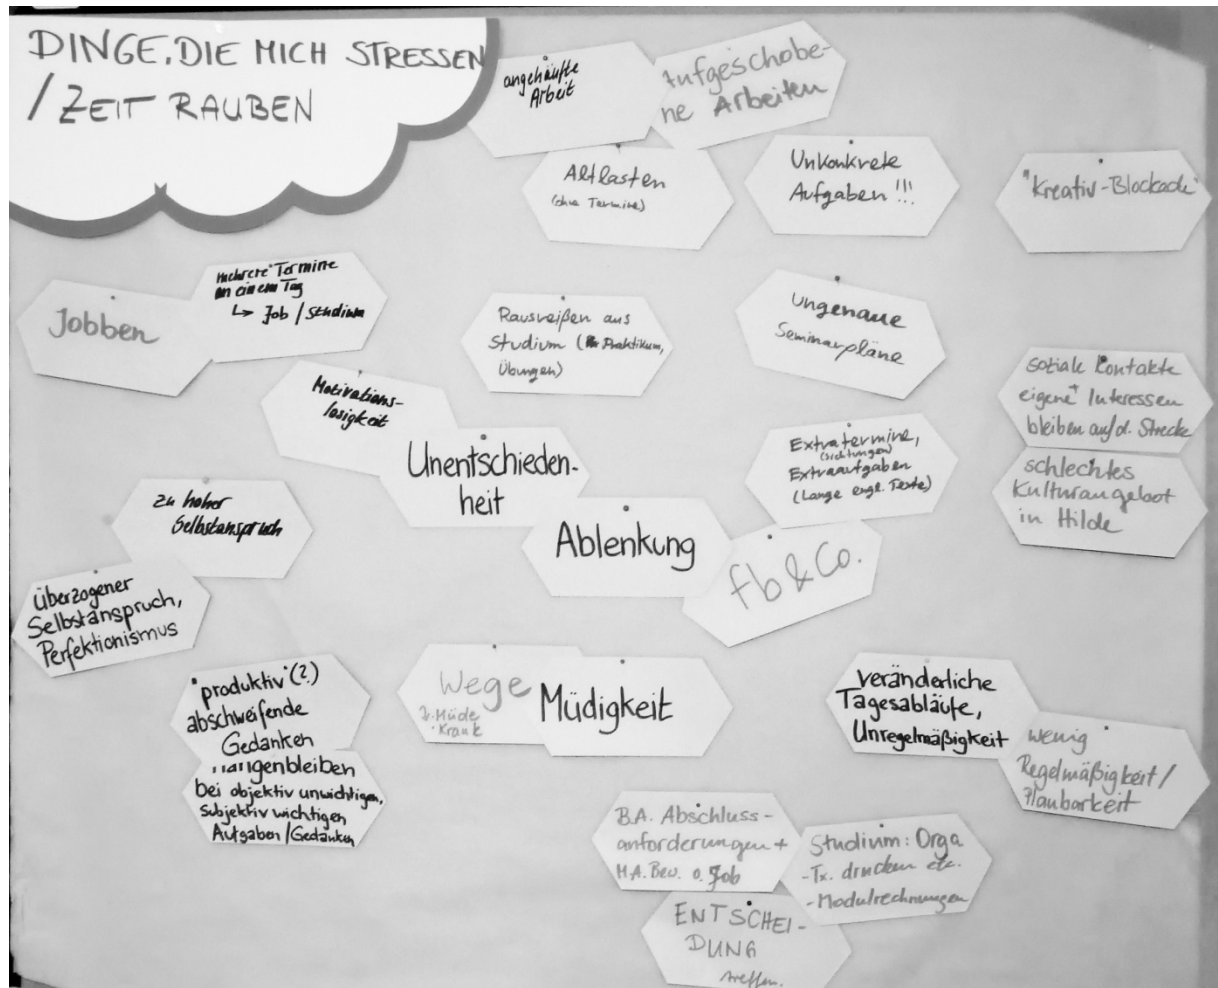 DINGE, DIE MICH STRESSEN
/ ZEIT RAUBEN
angehäufte
Arbeit
Aufgeschobe-
ne Arbeiten
Altlasten
(ohne Termine)
Unkonkrete
Aufgaben !!!
"Kreativ-Blockade"
Jobben
mehrere Termine
an einem Tag
↳ Job / Studium
Rausreißen aus
Studium (Praktikum,
Übungen)
ungenaue
Seminarpläne
soziale Kontakte
eigene Interessen
bleiben auf d. Strecke
Motivations-
losigkeit
Unentschieden-
heit
Extratermine,
(Sichtungen)
Extraaufgaben
(Lange engl. Texte)
schlechtes
Kulturangebot
in Hilde
zu hoher
Selbstanspruch
Ablenkung
fb & Co.
überzogener
Selbstanspruch,
Perfektionismus
"produktiv"(?)
abschweifende
Gedanken
Hängenbleiben
bei objektiv unwichtigen,
subjektiv wichtigen
Aufgaben/Gedanken
Wege
Müde
Krank
Müdigkeit
veränderliche
Tagesabläufe,
Unregelmäßigkeit
wenig
Regelmäßigkeit/
Planbarkeit
B.A. Abschluss-
anforderungen +
M.A. Bew. o. Job
Studium: Orga
- Tx. drucken etc.
- Modulrechnungen
ENTSCHEI-
DUNG
treffen.